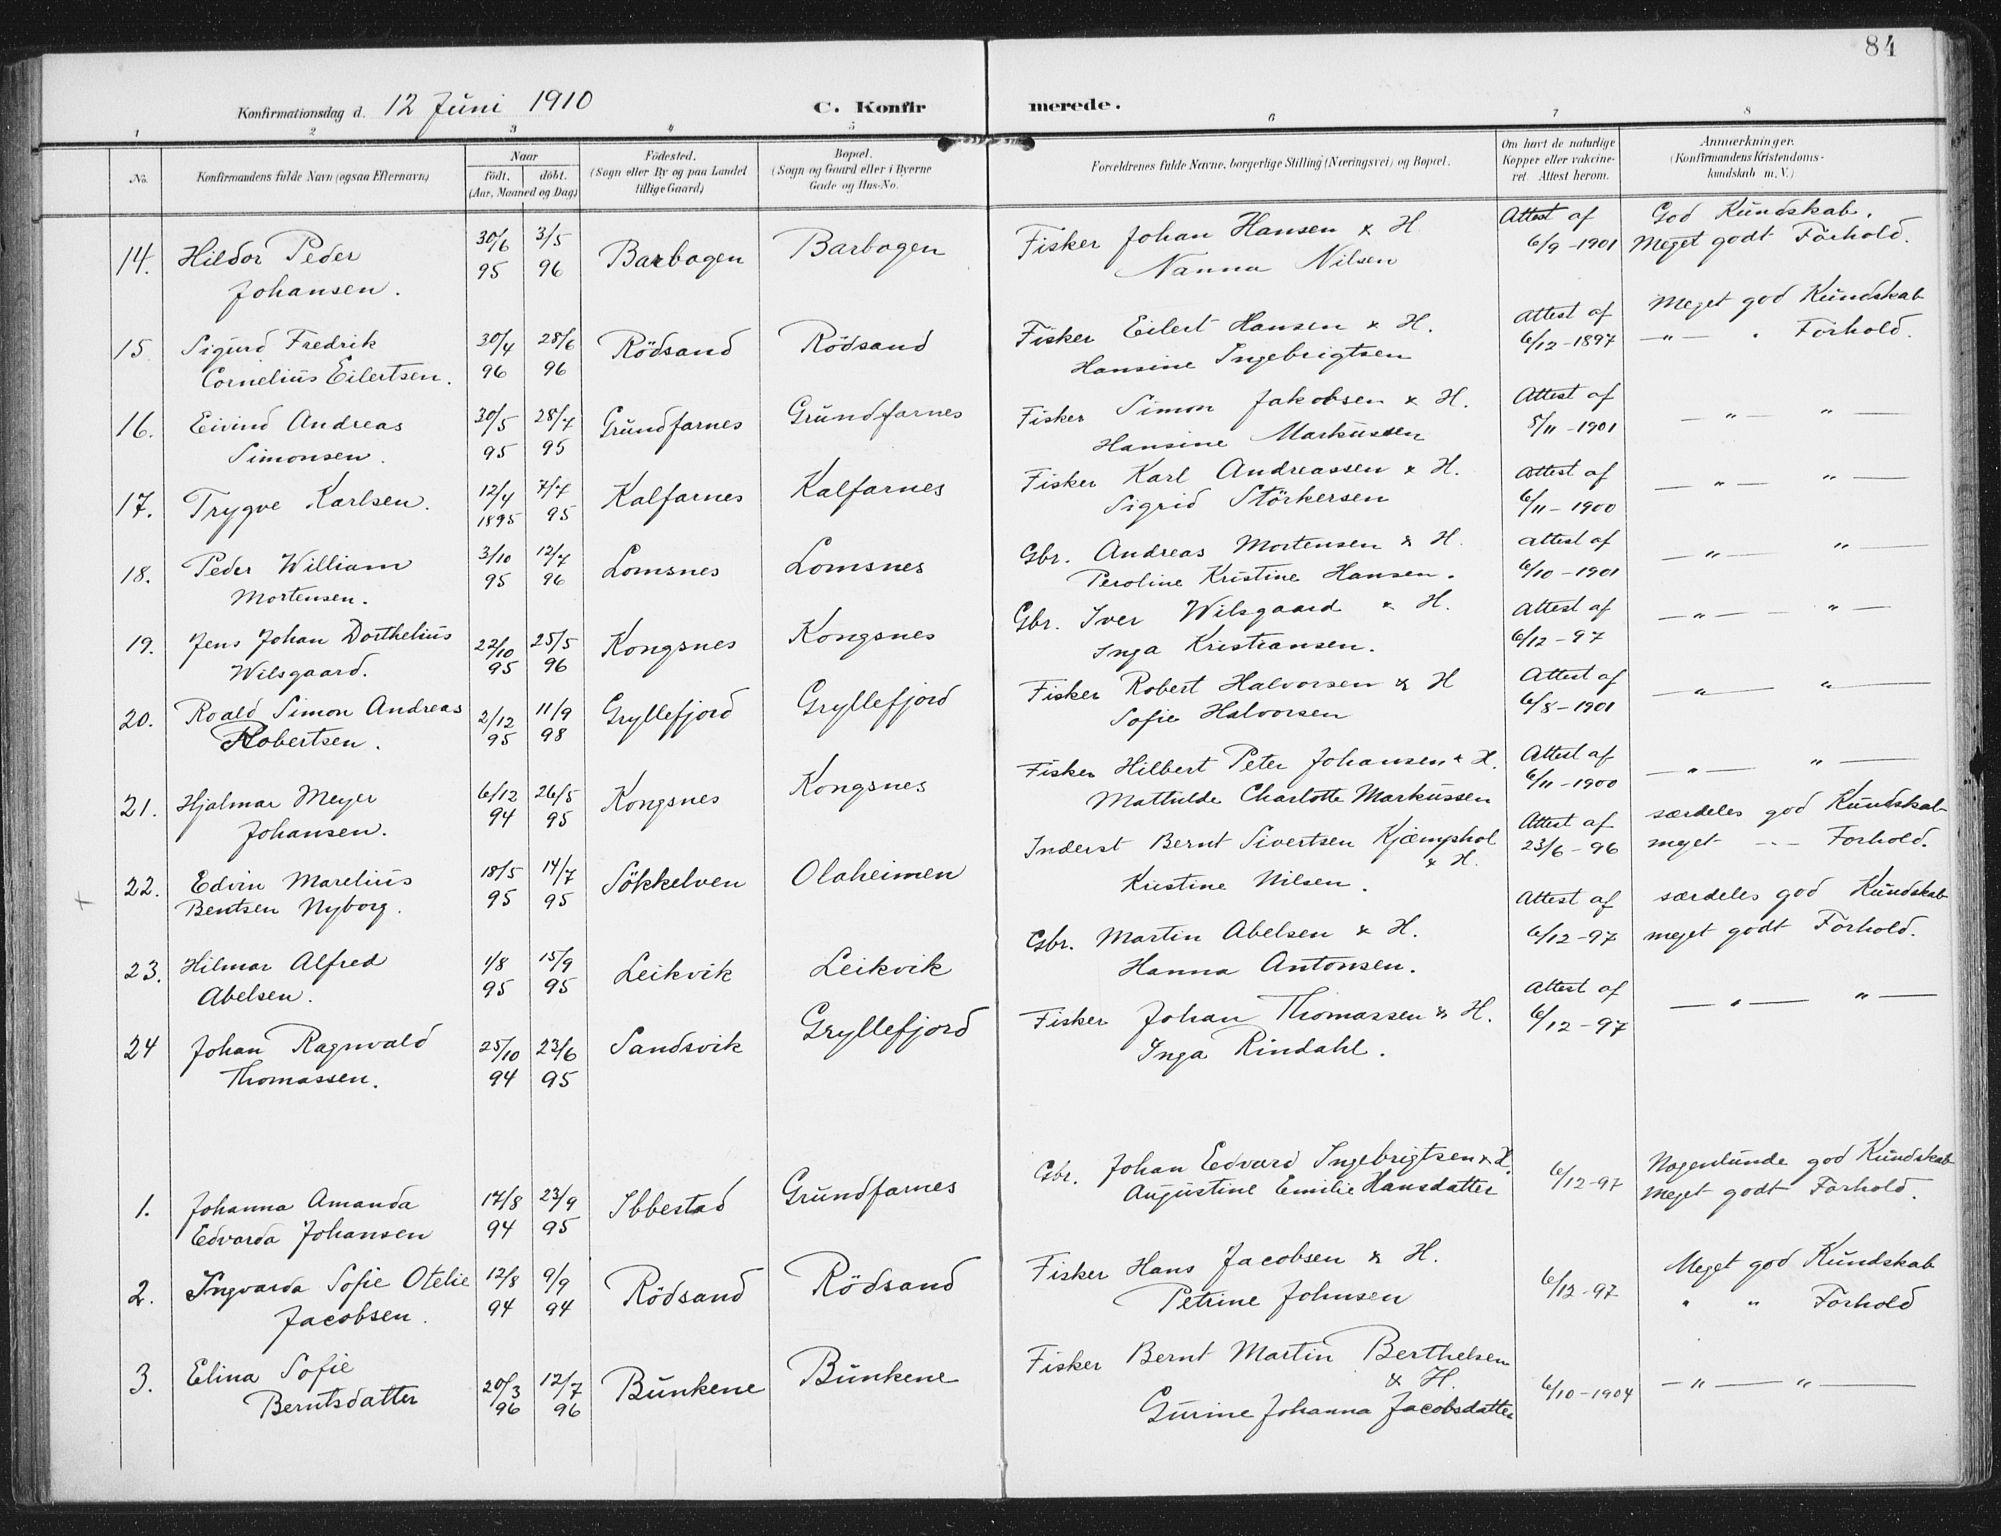 84
Konfirmationsdag d. 12 Juni 1910 C. Konfirmerede.
1 2 3 4 5 6 7 8
No. Konfirmandens fulde Navn (ogsaa Efternavn) Naar født. døbt. (Aar, Maaned og Dag) Fødested. (Sogn eller By og paa Landet tillige Gaard) Bopæl. (Sogn og Gaard eller i Byerne Gade og Hus-No. Forældrenes fulde Navne, borgerlige Stilling (Næringsvei) og Bopæl. Om havt de naturlige Kopper eller vakcineret. Attest herom. Anmærkninger. (Konfirmandens Kristendomskundskab m. V.)
14. Hildor Peder 30/6 3/5 Barbogen Barbogen Fisker Johan Hansen & H. Attest af God Kundskab.
Johansen. 95 96 Nanna Nilsen 6/9-1901 Meget godt Forhold.
15. Sigurd Fredrik 30/4 28/6 Rödsand Rödsand Fisker Eilert Hansen & H. Attest af Meget god Kundskab
Cornelius Eilertsen. 96 96 Hansine Ingebrigtsen 6/12-1897 —"— . Forhold.
16. Eivind Andreas 30/5 28/7 Grundfarnes Grundfarnes Fisker Simon Jakobsen & H. Attest af —"— "—
Simonsen. 95 95 Hansine Markussen 5/11-1901
17. Trygve Karlsen. 12/4 7/7 Kalfarnes Kalfarnes Fisker Karl Andreassen & H. Attest af —"— "—
1895 95 Sigrid Störkersen 6/11-1900
18. Peder William 3/10 12/7 Lomsnes Lomsnes Gbr. Andreas Mortensen & H. Attest af —"— "—
Mortensen. 95 96 Peroline Kristine Hansen. 6/10-1901
19. Jens Johan Dorthelius 22/10 25/5 Kongsnes Kongsnes Gbr. Iver Wilsgaard & H. Attest af —"— "—
Wilsgaard. 95 96 Inga Kristiansen. 6/12-97
20. Roald Simon Andreas 2/12 11/9 Gryllefjord Gryllefjord Fisker Robert Halvorsen & H Attest af —"— "—
Robertsen. 95 98 Sofie Halvorsen 6/8-1901
21. Hjalmar Meyer 6/12 26/5 Kongsnes Kongsnes Fisker Hilbert Peter Johansen & H. Attest af —"— "—
Johansen. 94 95 Mathilde Charlotte Markussen 6/11-1900
22. Edvin Marelius 18/5 14/7 Sökkelven Olaheimen Inderst Bernt Sivertsen Kjæmphol & H. Attest af særdeles god Kundskab
Bentsen Nyborg. 95 95 Kristine Nilsen. 23/6-96 meget -.- Forhold.
23. Hilmar Alfred 1/8 15/9 Leikvik Leikvik Gbr. Martin Abelsen & H. Attest af særdeles god Kundskab
Abelsen. 95 95 Hanna Antonsen. 6/12-97 meget godt Forhold.
24 Johan Ragnvald 25/10 23/6 Sandsvik Gryllefjord Fisker Johan Thomassen & H. Attest af —"— "—
Thomassen. 94 95 Inga Rindahl. 6/12-97
1. Johanna Amanda 17/8 23/9 Ibbestad Grundfarnes Gbr. Johan Edvard Ingebrigtsen & H. 6/12-97 Nogenlunde god Kundskab
Edvarda Johansen 94 95 Augustine Emilie Hansdatter meget godt Forhold.
2. Ingvarda Sofie Otelie 12/8 9/9 Rödsand Rödsand Fisker Hans Jacobsen & H. 6/12-97 Meget god Kundskab
Jacobsen. 94 94 Petrine Johnsen " " Forhold
3. Elina Sofie 20/3 12/7 Bunkene Bunkene Fisker Bernt Martin Berthelsen & H. 6/10-1904 —"— "—
Berntsdatter 96 96 Gurine Johanna Jacobsdatter